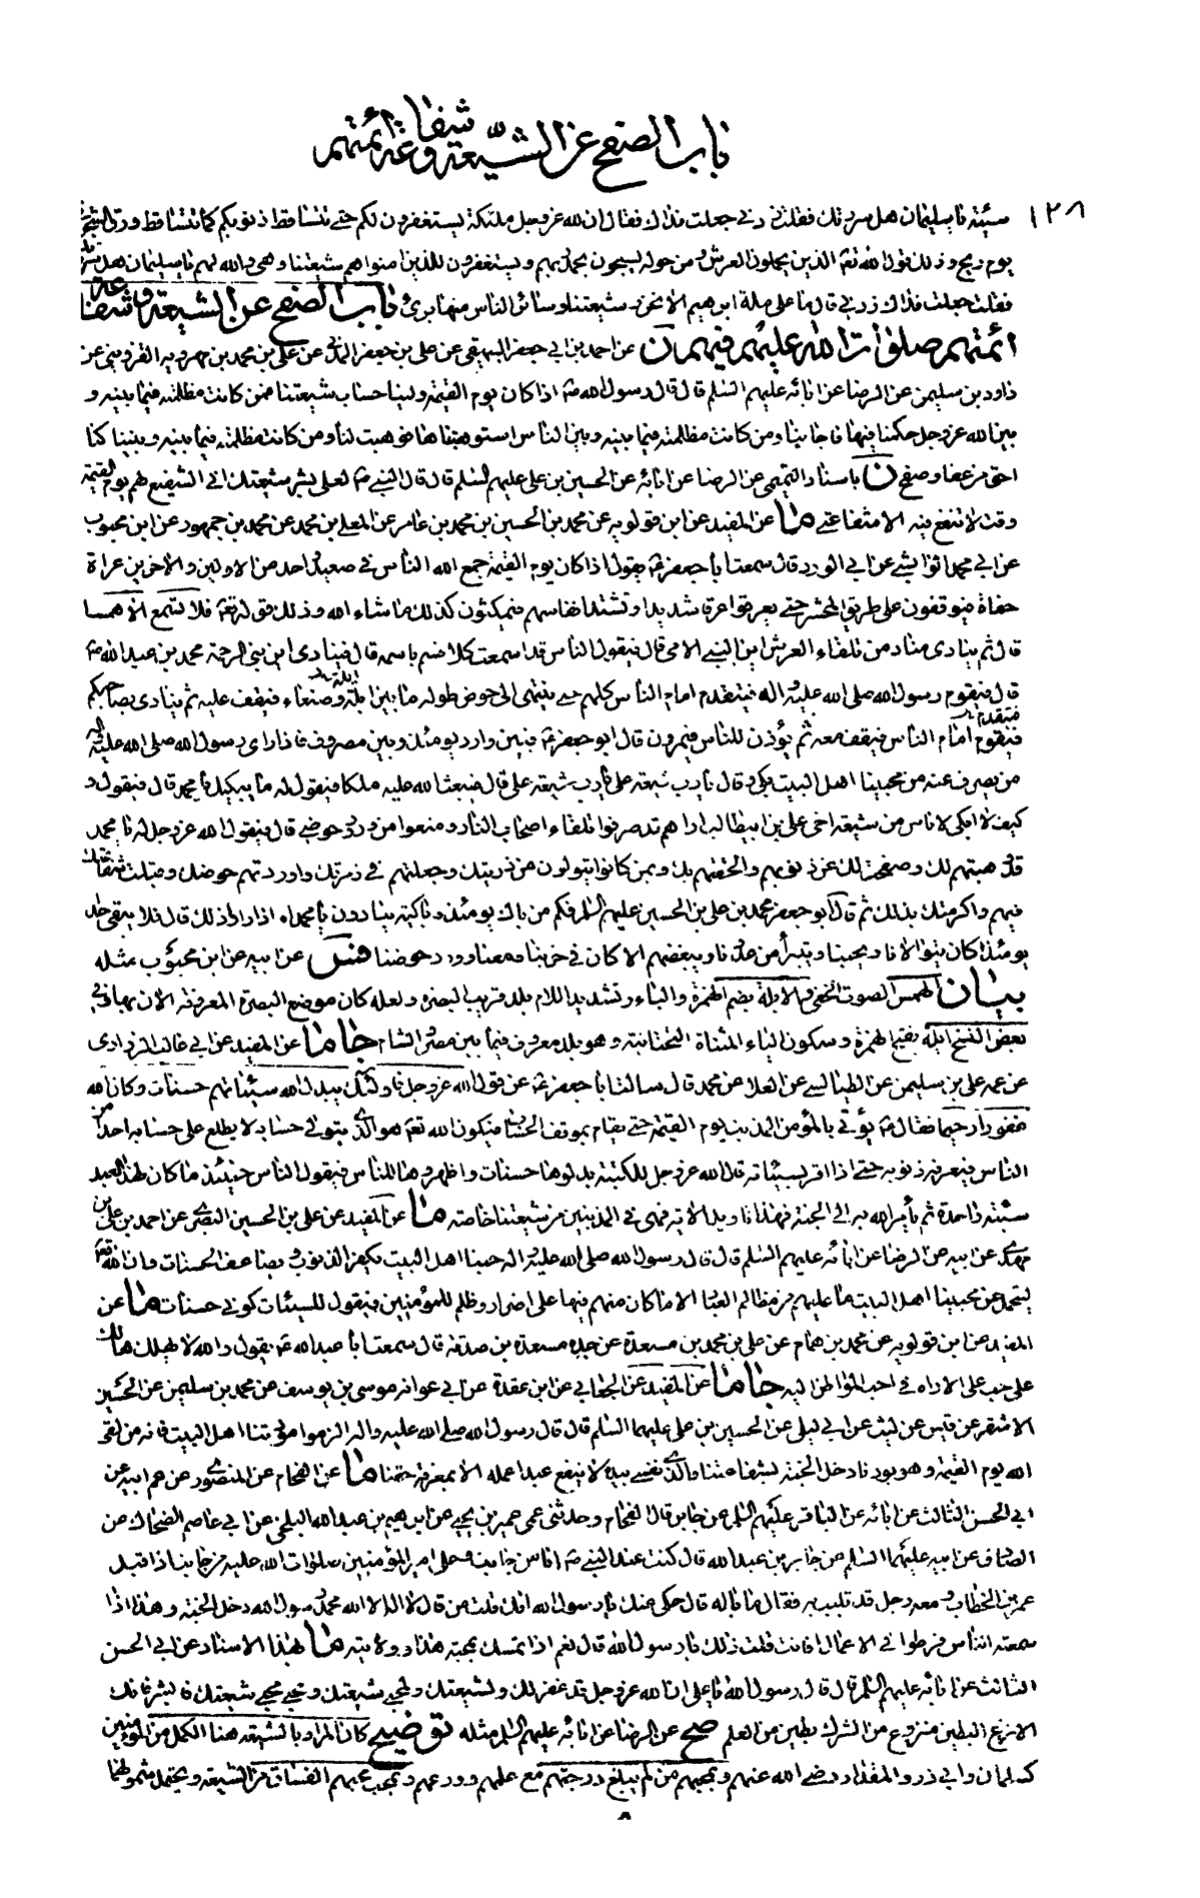 باب الصفح عن الشيعة وشفاعة أئمتهم
١٢٨
سيئة يا سليمان هل سررتك فقلت زدني جعلت فداك فقال ان لله عز وجل ملئكة يستغفرون لكم حتى تتساقط ذنوبكم كما تتساقط ورق الشجر
يوم ريح وذلك قول الله تعم الذين يحملون العرش ومن حوله يسبحون بحمد ربهم ويستغفرون للذين امنوا هم شيعتنا وهي والله لهم يا سليمان هل سررتك
فقلت جعلت فداك زدني قال ما على ملة ابرهيم الا نحن وشيعتنا وسائر الناس منها برئ باب الصفح عن الشيعة وشفاعة
ائمتهم صلوات الله عليهم فيهم ن عن احمد بن ابي جعفر البيهقي عن علي بن جعفر المدني عن علي بن محمد بن مهرويه القزويني عن
داود بن سليمن عن الرضا عن ابائه عليهم السلم قال قال رسول الله ص اذا كان يوم القيمة ولينا حساب شيعتنا فمن كانت مظلمته فيما بينه و
بين الله عز وجل حكمنا فيها فاجابنا ومن كانت مظلمته فيما بينه وبين الناس استوهبناها فوهبت لنا ومن كانت مظلمته فيما بينه وبيننا كنا
احق من عفا وصفح ن باسناد التميمي عن الرضا عن ابائه عن الحسين بن علي عليهم السلم قال قال النبي ص لعلي بشر شيعتك اني الشفيع لهم يوم القيمة
وقت لا تنفع فيه الا شفاعتي ما عن المفيد عن ابن قولويه عن محمد بن الحسين بن محمد بن عامر عن المعلى بن محمد عن محمد بن جمهور عن ابن محبوب
عن ابي محمد الوابشي عن ابي الورد قال سمعت ابا جعفر ع يقول اذا كان يوم القيمة جمع الله الناس في صعيد واحد من الاولين والاخرين عراة
حفاة فيوقفون على طريق المحشر حتى يعرقوا عرقا شديدا وتشتد انفاسهم فيمكثون كذلك ما شاء الله وذلك قوله تعم فلا تسمع الا همسا
قال ثم ينادي مناد من تلقاء العرش اين النبي الامي قال فيقول الناس قد اسمعت كلا فسم باسمه قال فينادي اين نبي الرحمة محمد بن عبد الله ص
قال فيقوم رسول الله صلى الله عليه واله فيتقدم امام الناس كلهم حتى ينتهي الى حوض طوله ما بين ايلة وصنعاء فيقف عليه ثم ينادي بصاحبكم
فيقوم امام الناس فيقف معه ثم يؤذن للناس فيمرون قال ابو جعفر ع فبين وارد يومئذ وبين مصروف فاذا راى رسول الله صلى الله عليه واله
من يصرف عنه من محبينا اهل البيت بكى وقال يا رب شيعة علي يا رب شيعة علي قال فيبعث الله عليه ملكا فيقول له ما يبكيك يا محمد قال فيقول و
كيف لا ابكي لاناس من شيعة اخي علي بن ابيطالب اراهم قد صرفوا تلقاء اصحاب النار ومنعوا من ورود حوضي قال فيقول الله عز وجل له يا محمد
قد وهبتهم لك وصفحت لك عن ذنوبهم والحقتهم بك وبمن كانوا يتولون من ذريتك وجعلتهم في زمرتك واوردتهم حوضك وقبلت شفاعتك
فيهم واكرمتك بذلك ثم قال ابو جعفر محمد بن علي بن الحسين عليهم السلم فكم من باك يومئذ وباكية ينادون يا محمداه اذا راوا ذلك قال فلا يبقى احد
يومئذ كان يتوالانا ويحبنا ويتبرأ من عدونا ويبغضهم الا كان في حزبنا ومعنا وورد حوضنا فس عن ابيه عن ابن محبوب مثله
بيان الهمس الصوت الخفي والابلة بضم الهمزة والباء وتشديد اللام بلد قريب البصرة ولعله كان موضع البصرة المعروفة الان بها وفي
بعض النسخ ايلة بفتح الهمزة وسكون الياء المثناة التحتانية وهو بلد معروف فيما بين مصر والشام جا ما عن المفيد عن ابي غالب الزراري
عن عمه علي بن سليمن عن الطيالسي عن العلا عن محمد قال سالت ابا جعفر ع عن قول الله عز وجل فاولئك يبدل الله سيئاتهم حسنات وكان الله
غفورا رحيما فقال ع يؤتى بالمؤمن المذنب يوم القيمة حتى يقام بموقف الحساب فيكون الله تعم هو الذي يتولى حسابه لا يطلع على حسابه احدا من
الناس فيعرفه ذنوبه حتى اذا اقر بسيئاته قال الله عز وجل للكتبة بدلوها حسنات واظهروها للناس فيقول الناس حينئذ ما كان لهذا العبد
سيئة واحدة ثم يأمر الله به الى الجنة فهذا تاويل الاية فهي في المذنبين من شيعتنا خاصة ما عن المفيد عن علي بن الحسين البصري عن احمد بن علي بن
مهدي عن ابيه عن الرضا عن ابائه عليهم السلم قال قال رسول الله صلى الله عليه واله حبنا اهل البيت يكفر الذنوب ويضاعف الحسنات وان الله تعم
ليتحمل عن محبينا اهل البيت ما عليهم من مظالم العباد الا ما كان منهم فيها على اضرار وظلم للمؤمنين فيقول للسيئات كوني حسنات ما عن
المفيد عن ابن قولويه عن محمد بن همام عن علي بن محمد بن مسعدة عن جده مسعدة بن صدقة قال سمعت ابا عبد الله ع يقول والله لا يهلك هالك
على حب علي الا راه في احب المواطن اليه جا ما عن المفيد عن الجعابي عن ابن عقدة عن ابي عوانه موسى بن يوسف عن محمد بن سليمن عن الحسين
الاشقر عن قيس عن ليث عن ابي ليلى عن الحسين بن علي عليهما السلم قال قال رسول الله صلى الله عليه واله الزموا مودتنا اهل البيت فانه من لقي
الله يوم القيمة وهو يودنا دخل الجنة بشفاعتنا والذي نفسي بيده لا ينفع عبدا عمله الا بمعرفة حقنا ما عن الفحام عن المنصوري عن عم ابيه عن
ابي الحسن الثالث عن ابائه عن الباقر عليهم السلم عن جابر قال الفحام وحدثني عمي عمير بن يحيى عن ابرهيم بن عبد الله البلخي عن ابي عاصم الضحاك عن
الصادق عن ابيه عليهما السلم عن جابر بن عبد الله قال كنت عند النبي ص انا من جانب وعلي امير المؤمنين صلوات الله عليه من جانب اذ اقبل
عمر بن الخطاب ومعه رجل قد تلبب به فقال ما باله قال حكى عنك يا رسول الله انك قلت من قال لا اله الا الله محمد رسول الله دخل الجنة وهذا اذا
سمعته الناس فرطوا في الاعمال افانت قلت ذلك يا رسول الله قال نعم اذا تمسك بمحبة هذا وولايته ما بهذا الاسناد عن ابي الحسن
الثالث عن ابائه عليهم السلم قال قال رسول الله يا علي ان الله عز وجل قد غفر لك ولشيعتك ولمحبي شيعتك ومحبي محبي شيعتك فابشر فانك
الانزع البطين منزوع من الشرك بطين من العلم صح عن الرضا عن ابائه عليهم السلم مثله توضيح كان المراد بالشيعة هنا الكمل من المؤمنين
كسلمان وابي ذر والمقداد رضي الله عنهم وبمحبيهم من لم يبلغ درجتهم مع علمهم وورعهم وبمحب محبيهم الفساق من الشيعة ويحتمل شموله لهما